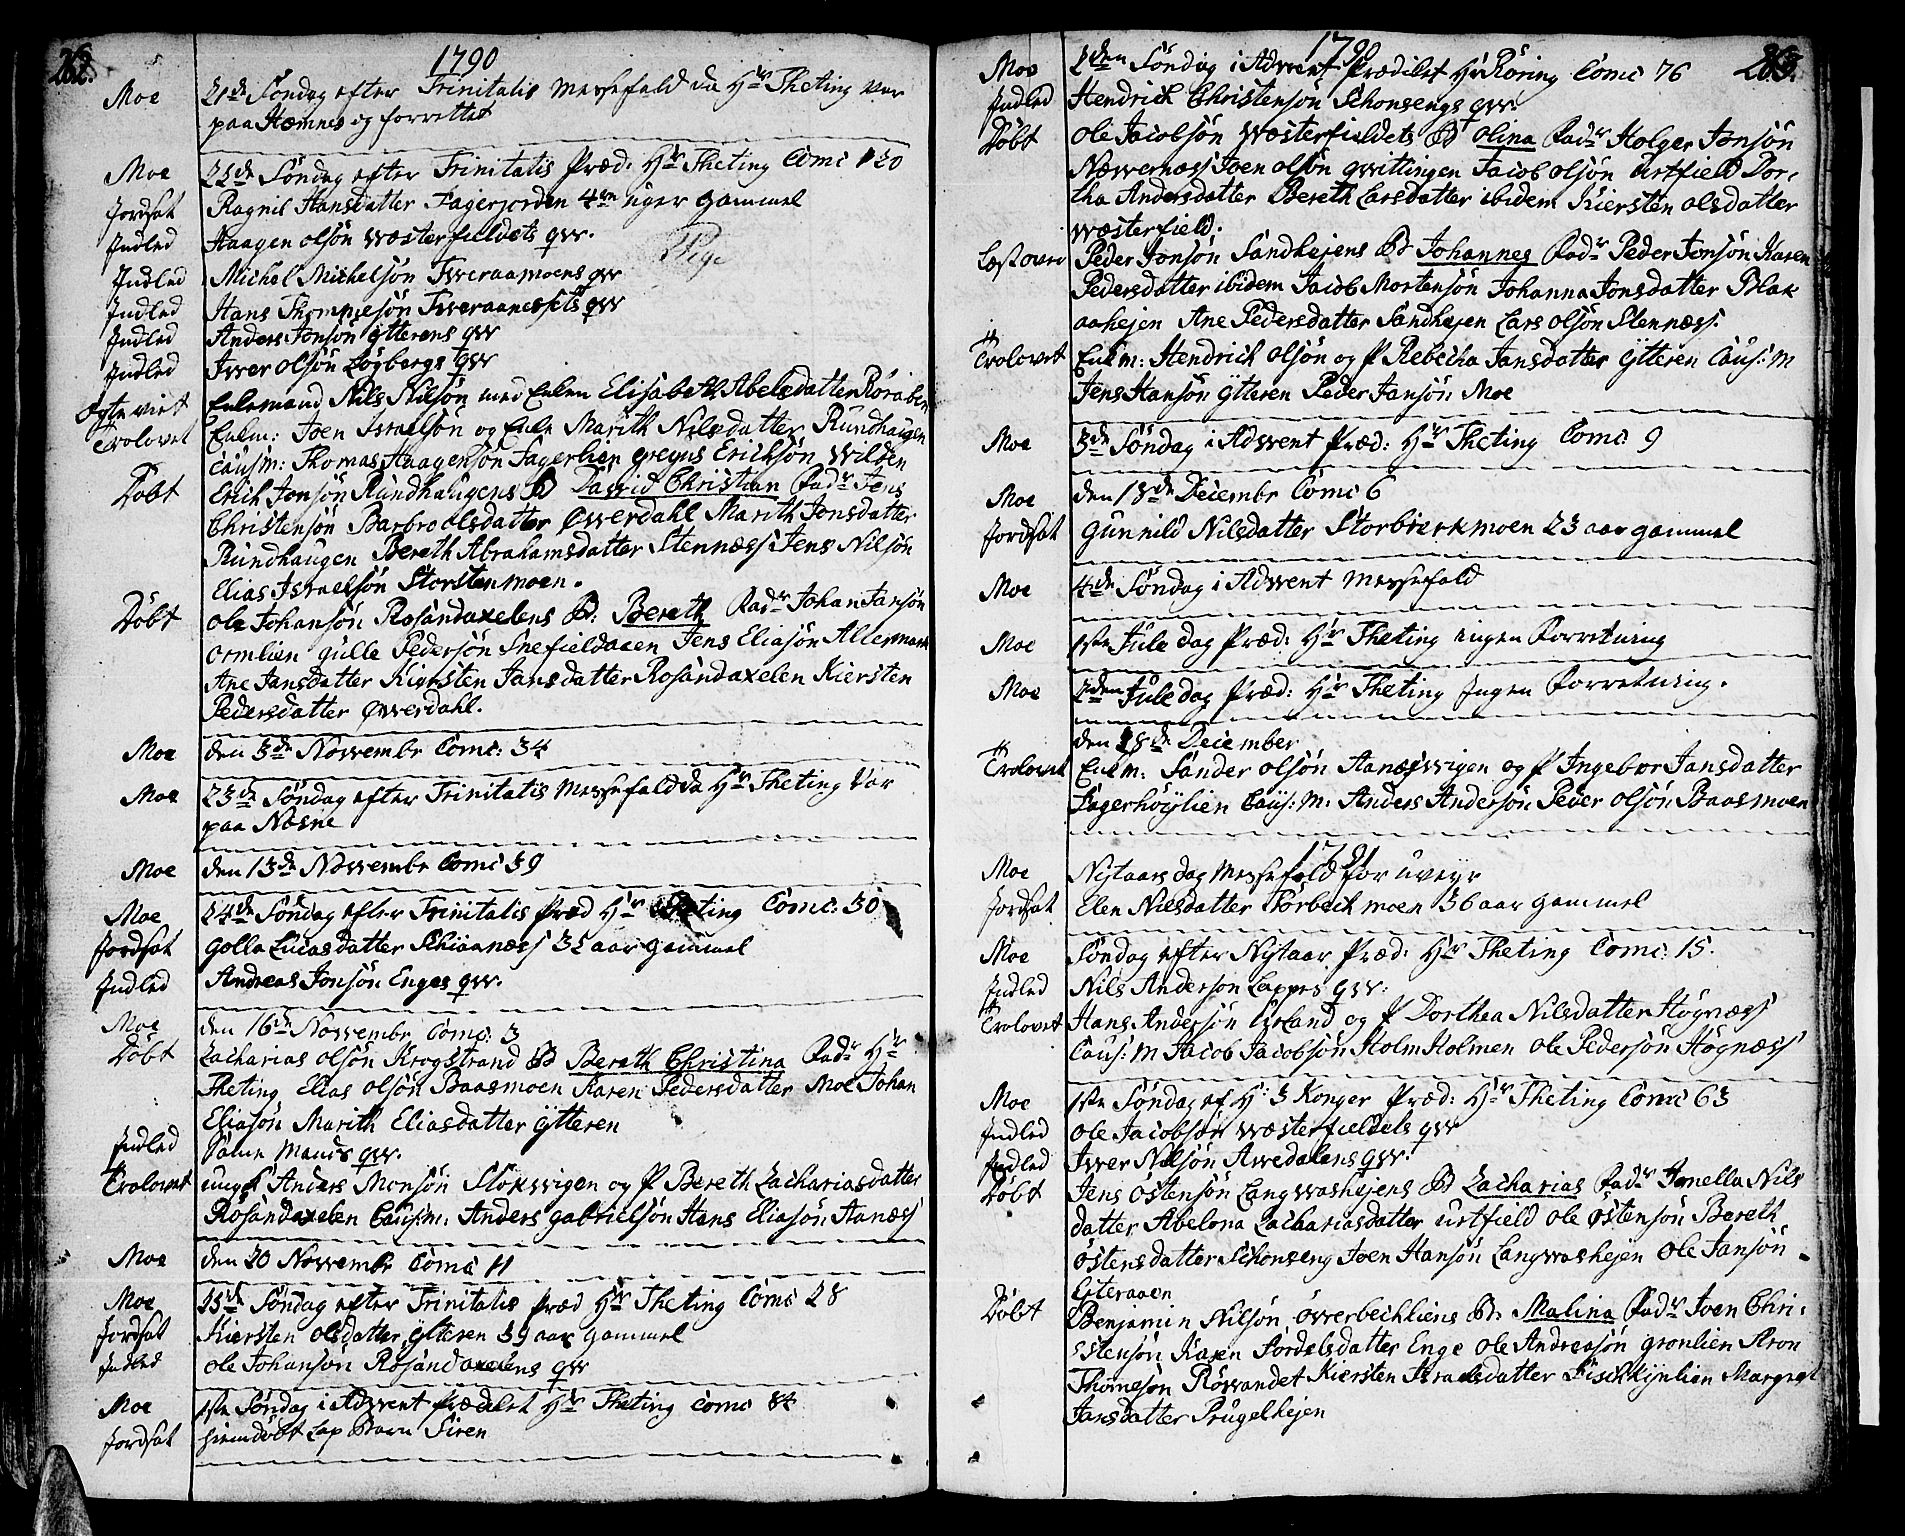 262.
1790
Moe 21de Søndag efter Trinitatis Messefald da Hr Theting var
paa Hæmnes og forrettet
Moe 22de Søndag efter Trinitatis Præd: Hr Theting Comc 120
Jordsat Ragnil Hansdatter Fagerjorden 4re uger gammel
Indled Haagen olsøn wæsterfieldets qvv. Pige
Indled Michel Michelsøn Tveraamoens qv
Indled Hans Thommesøn Tveraanessets qvv
Indled Anders Jonsøn ytterens qvv
Indled Iver olsøn Løgbergs qvv
Ægte viet Enkemand Nils Nilsøn med Enken Elisabeth Abelsdatter Røraben
Trolovet Enkm: Joen Israelsøn og Enke Marith Nilsdatter Rundhaugen
Causm: Thomas Haagensøn Fagerlien greyus Ericksøn Wilden
Døbt Erich Jonsøn Rundhaugens B David Christian Fadr Jens
Christensøn Barbro olsdatter Øverdahl Marith Jonsdatter
Rundhaugen Bereth Abrahamsdatter Stennæss Jens Nilsøn
Elias Israelsøn Storstenmoen.
Døbt ole Johansøn Røsandaxelens B: Bereth Fadr Johan Jansøn
ormlien gulle Pedersøn Snefieldaaen Jens Eliasøn Altermark
Ane Jansdatter Kiersten Jansdatter Røsandaxelen Kiersten
Pedersdatter Øverdahl.
Moe den 5de Novembr Comc: 34
Moe 23de Søndag efter Trinitatis Messefald da Hr Theting var
paa Næsne
Moe den 13de Novembr Comc 39
Moe 24de Søndag efter Trinitatis Præd Hr Theting Comc: 50
Jordsat golla Lucasdatter Schiaanæss 32 aar gammel
Indled Andreas Jonsøn Enges qvv.
Moe den 16de Novembr Comc: 3
Døbt Zacharias olsøn Krogstrand B Bereth Christina Fadr Hr
Theting Elias olsøn Baasmoen Karen Pedersdatter Moe Johan
Eliasøn Marith Eliasdatter ytteren
Indled Mands qvv.
Trolovet ungk Anders Monsøn Stokvigen og P Bereth Zachariasdatter
Røsandaxelen Causm: Anders gabrielsøn Hans Eliasøn Aanæss
Moe den 20 Novembr Comc 11
Moe 25de Søndag efter Trinitatis Præd Hr Theting Comc 28
Jordsat Kiersten olsdatter ytteren 59 aar gammel
Indled ole Johansøn Røsandaxelens qvv
Moe 1ste Søndag i Advent Prædiket Hr Theting Comc 84
Jordsat hiemdøbt Lap Barn Siren
263.
1790
Moe 2den Søndag i Advent Prædiket Hr Røring Comc 76
Indled Hendrich Christensøn Schonsengs qvv.
Døbt ole Jacobsøn wæsterfieldets B olina Fadr Holger Jonsøn
Næwernæss Joen olsøn qvittingen Jacob olsøn urtfield Dor-
tha Andersdatter Bereth Larsdatter ibidem Kiersten olsdatter
wæsterfield.
Læst over Peder Jonsøn Sandhejens B Johannes Fadr Peder Jonsøn Karen
Pedersdatter ibidem Jacob Mortensøn Johanna Jonsdatter Blak
aahejen Ane Pedersdatter Sandhejen Lars olsøn Stennæss.
Trolovet Enkm: Hendrich olsøn og P Rebecha Jansdatter ytteren Caus: M
Jens Hansøn ytteren Peder Jansøn Moe
Moe 3de Søndag i Advent Præd: Hr Theting Comc 9
Moe den 18de Decembr Comc 6
Jordsat gunnild Nilsdatter Storbierkmoen 23 aar gammel
Moe 4de Søndag i Advent Messefald
Moe 1ste Juledag Præd: Hr Theting ingen Forretning
Moe 2den Juledag Præd: Hr Theting Ingen Forretning.
den 28de December
Trolovet Enkm: Sander olsøn Aanæsvigen og P Ingebor Jansdatter
Fagerhøylien Caus: M: Anders Andersøn Peder olsøn Baasmoen
1791
Moe Nytaarsdag Messefald for uveyr
Jordsat Elen Nilsdatter Storbechmoen 36 aar gammel
Moe Søndag efter Nytaar Præd: Hr Theting Comc: 15.
Indled Nils Andersøn Lappes qvv.
Trolovet Hans Andersøn Høgnæss og P Dorthea Nilsdatter Høgnæss
Caus: M Jacob Jacobsøn Holm Holmen ole Pedersøn Høgnæss
Moe 1ste Søndag ef H: 3 Konger Præd: Hr Theting Comc 63
Indled ole Jacobsøn wæsterfieldets qvv
Indled Iver Nilsøn Avedalens qvv.
Døbt Jens Østensøn Langvashejens B Zacharias Fadr Jonella Nils
datter Abelona Zachariasdatter urtfield ole Østensøn Bereth
Østensdatter Schonseng Joen Hansøn Langvashejen ole Jansøn
Esteraaen
Døbt Benjamin Nilsøn øverbechliens B: Malina Fadr Joen Chri-
stensøn Karen Jordelsdatter Enge ole Andreasøn grønlien Aron
Thomesøn Røvandet Kiersten Israelsdatter Fischkynlien Margret
Jansdatter Prugelhejen